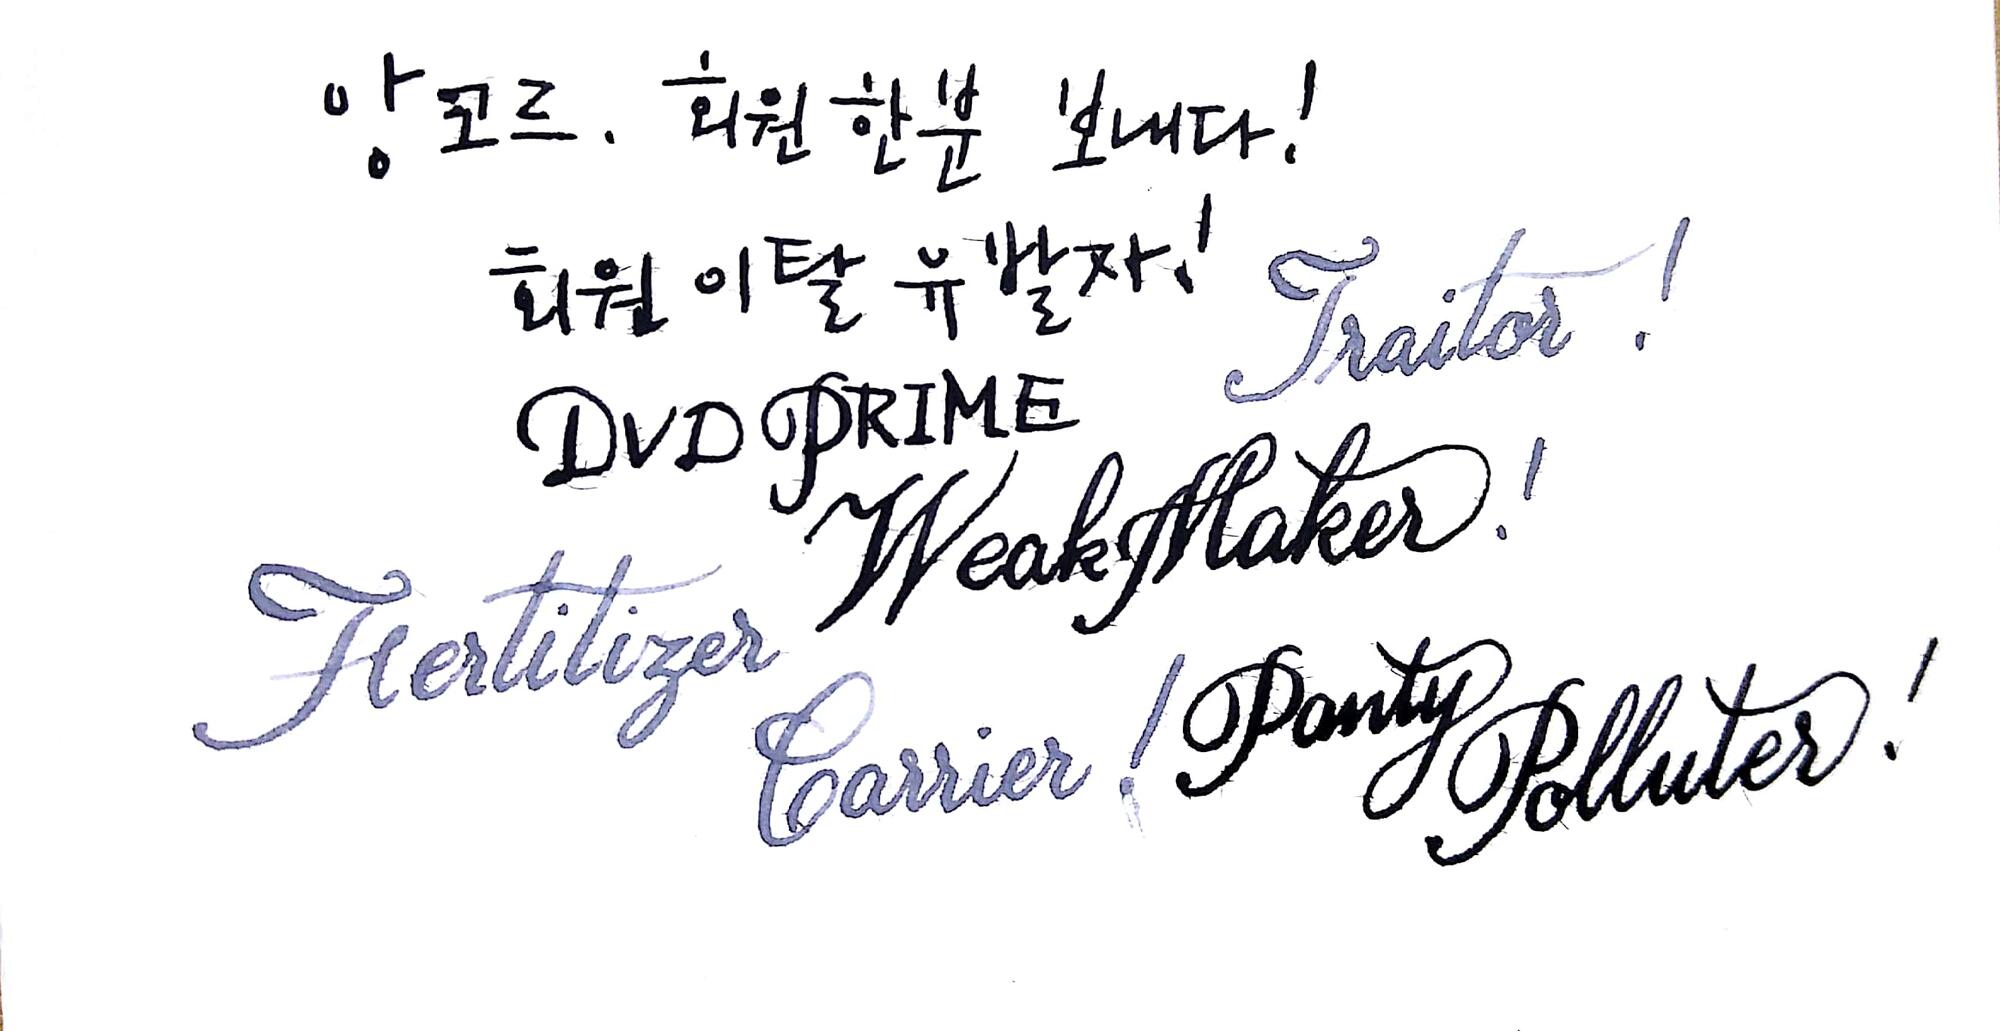 앙코르. 회원 한분 보내다!
회원 이탈 유발자!
Traitor!
DVD PRIME
Weak Maker!
Fertitizer
Carrier!
Panty
Polluter!